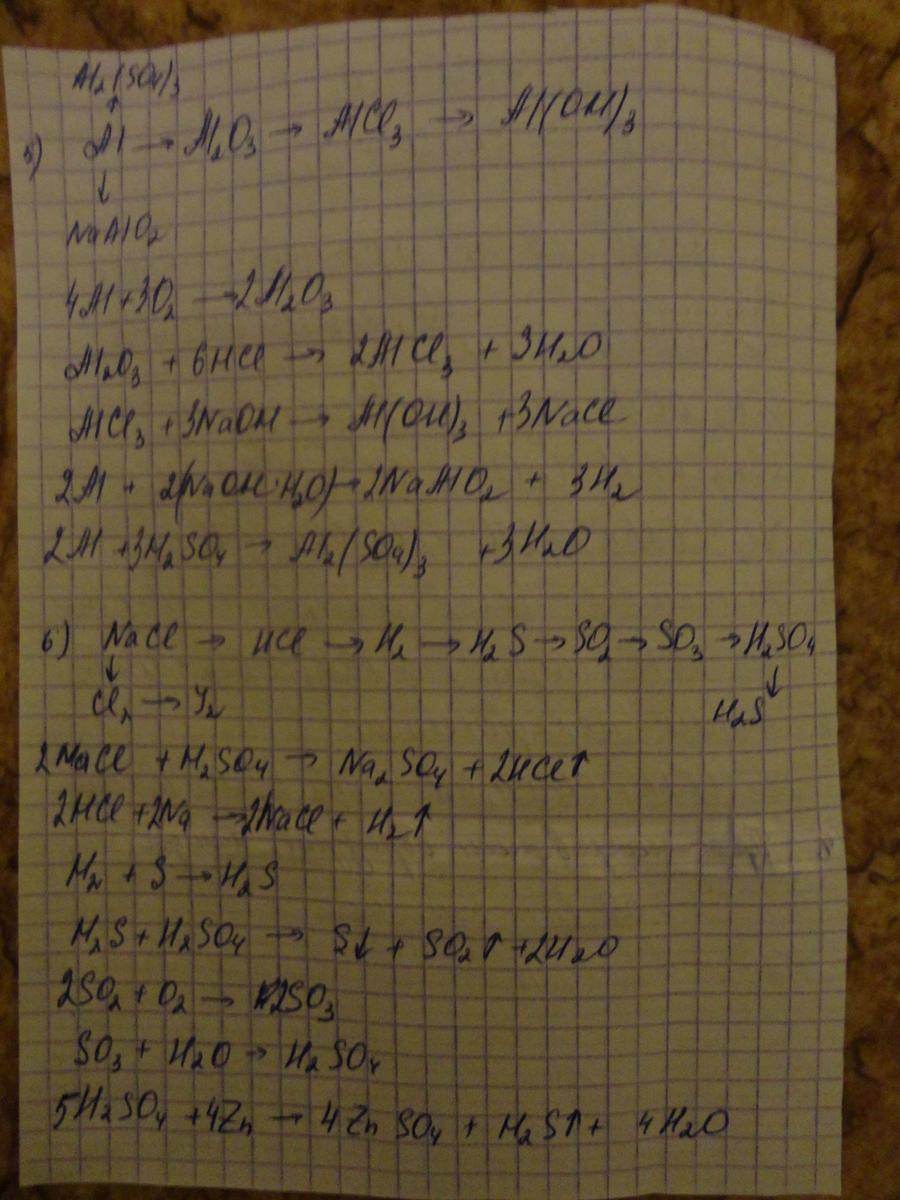 Al₂(SO₄)₃
↑
5) Al → Al₂O₃ → AlCl₃ → Al(OH)₃
↓
NaAlO₂
4Al + 3O₂ → 2Al₂O₃
Al₂O₃ + 6HCl → 2AlCl₃ + 3H₂O
AlCl₃ + 3NaOH → Al(OH)₃ + 3NaCl
2Al + 2(NaOH·H₂O) → 2NaAlO₂ + 3H₂
2Al + 3H₂SO₄ → Al₂(SO₄)₃ + 3H₂O
6) NaCl → HCl → H₂ → H₂S → SO₂ → SO₃ → H₂SO₄
↓ ↓
Cl₂ → J₂ H₂S
2NaCl + H₂SO₄ → Na₂SO₄ + 2HCl↑
2HCl + 2Na → 2NaCl + H₂↑
H₂ + S → H₂S
H₂S + H₂SO₄ → S↓ + SO₂↑ + 2H₂O
2SO₂ + O₂ → 2SO₃
SO₃ + H₂O → H₂SO₄
5H₂SO₄ + 4Zn → 4ZnSO₄ + H₂S↑ + 4H₂O